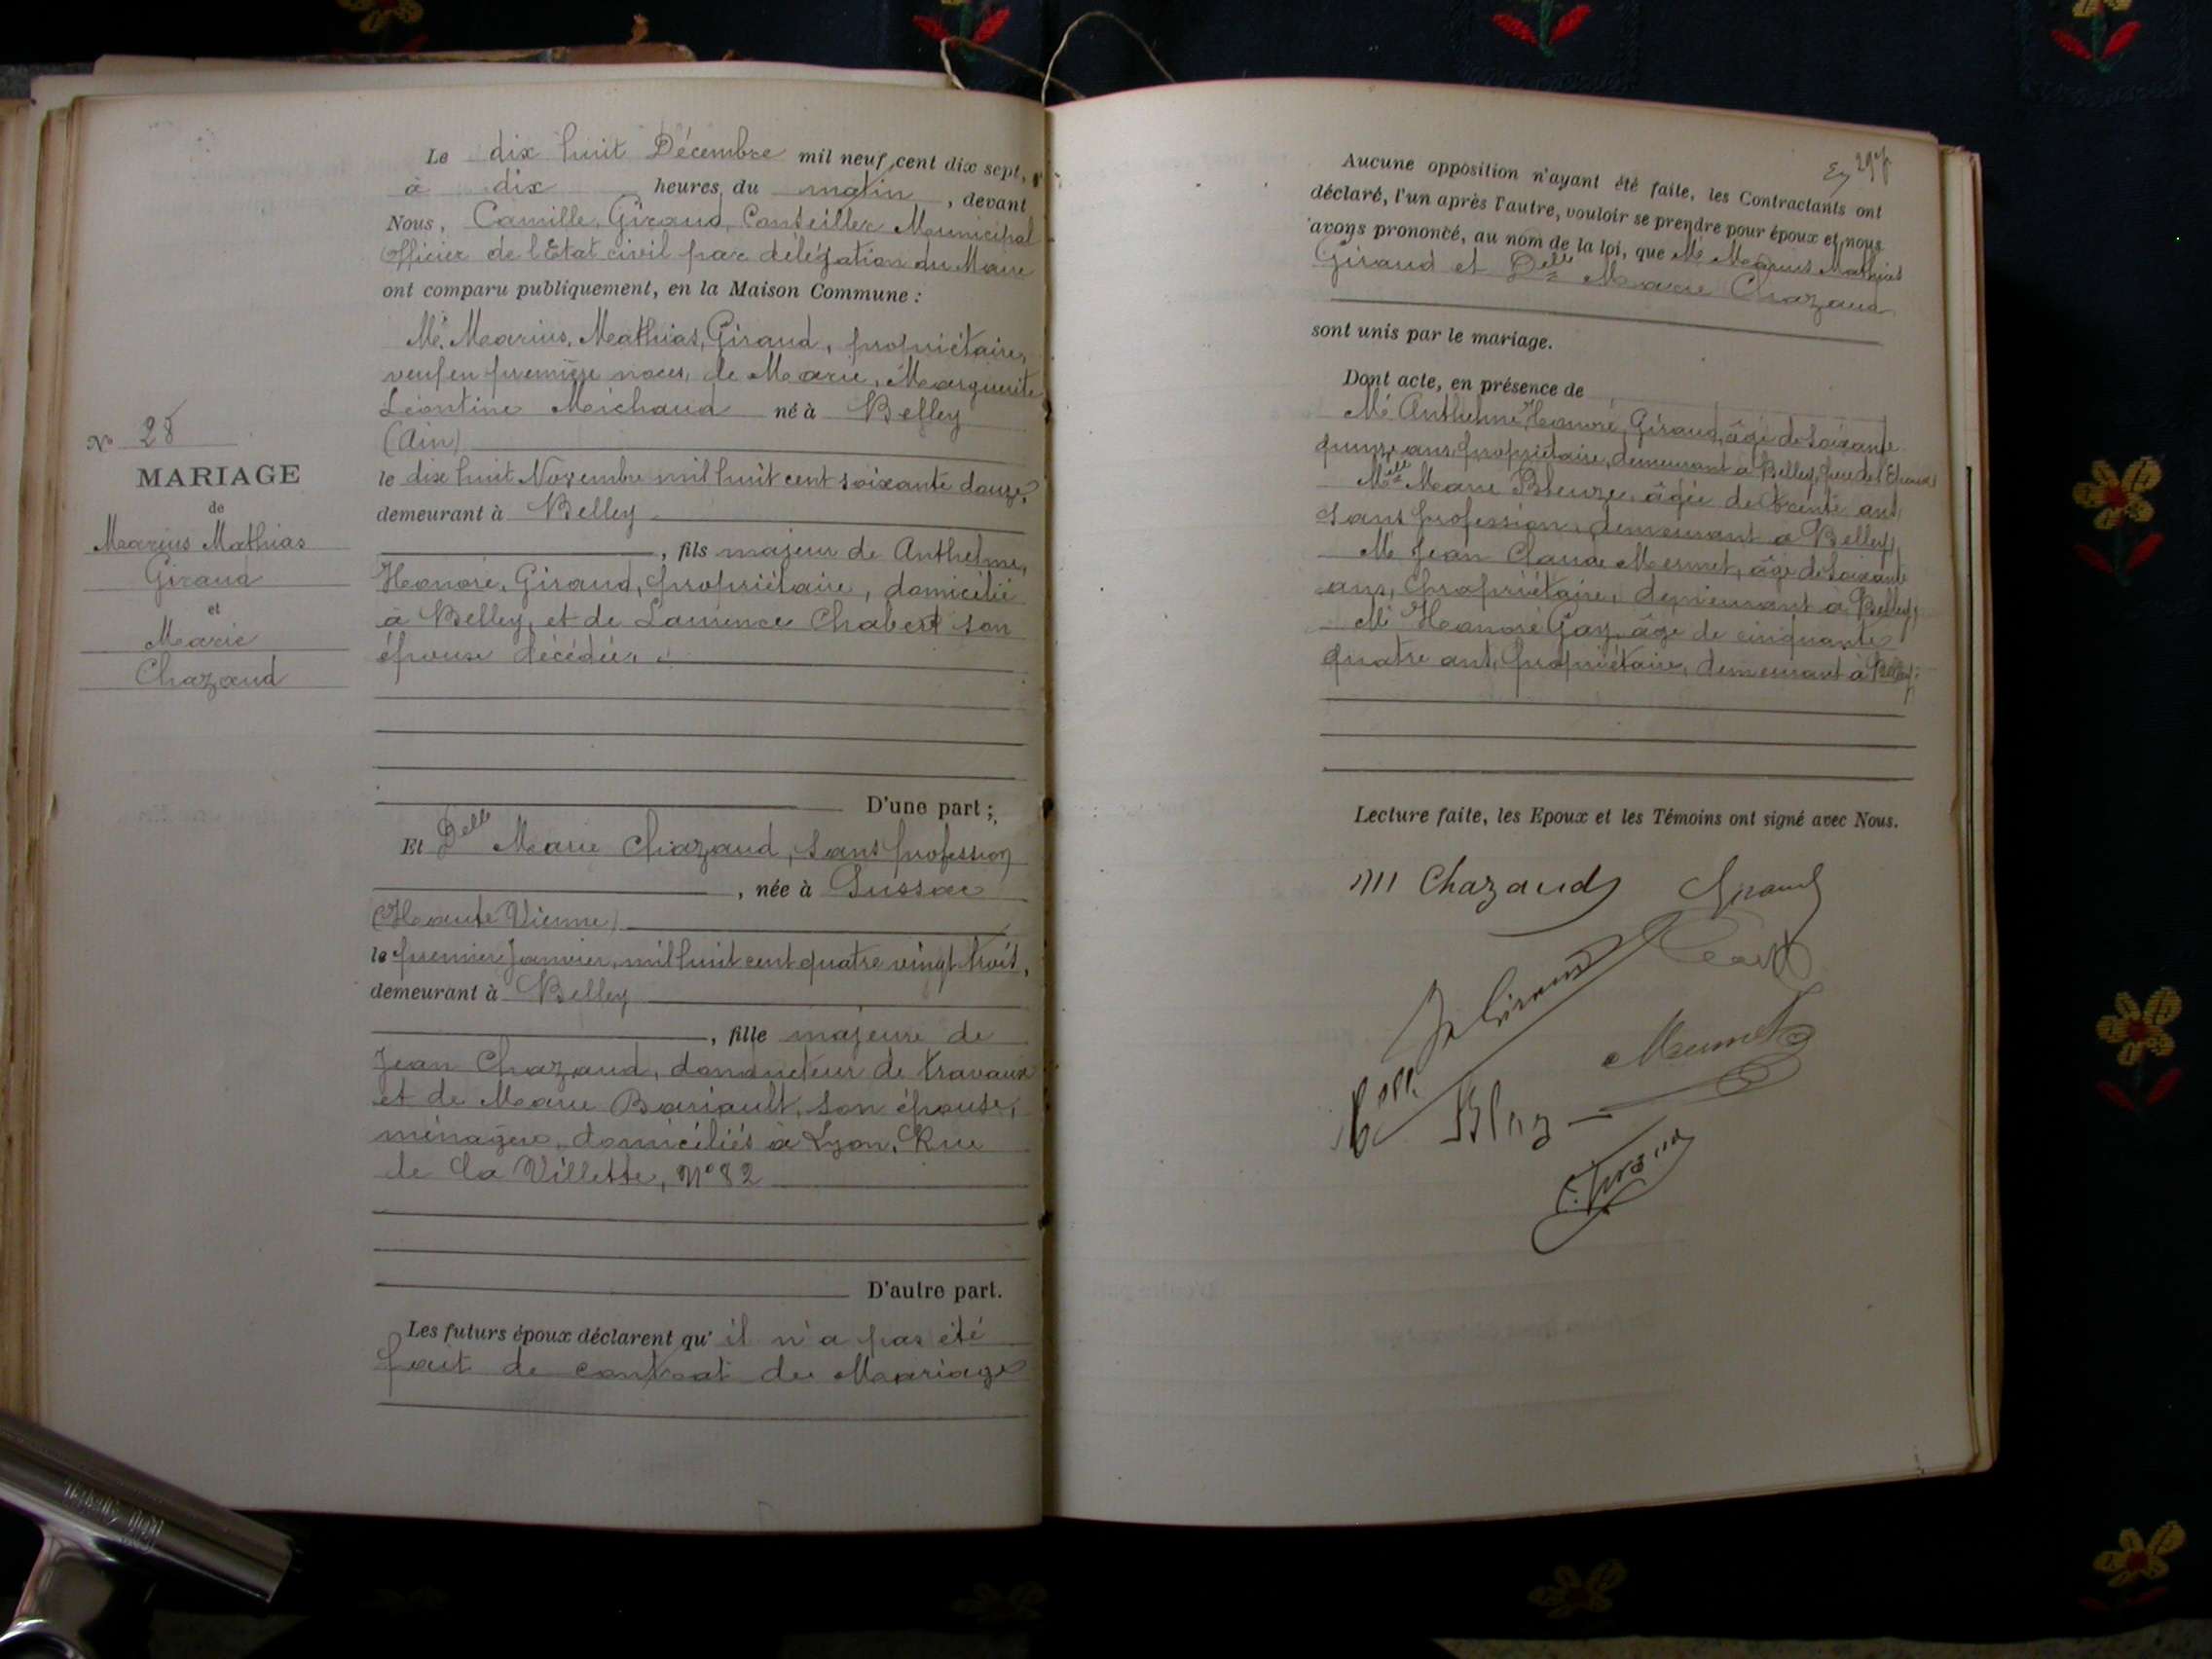 Le dix huit Décembre mil neuf cent dix sept,
à dix heures du matin, devant
Nous, Camille, Giraud, Conseiller Municipal
Officier de l'Etat civil par délégation du Maire
ont comparu publiquement, en la Maison Commune :
Mr. Marius, Mathias, Giraud, propriétaire,
veuf en première noces, de Marie, Marguerite
Léontine Michaud né à Belley
(Ain)
le dix huit Novembre mil huit cent soixante douze,
demeurant à Belley
, fils majeur de Anthelme,
Honoré, Giraud, propriétaire, domicilié
à Belley, et de Laurence Chabert son
épouse décédée.
D'une part ;
Et Delle Marie Chazaud, sans profession
, née à Sussac
(Haute Vienne)
le premier Janvier, mil huit cent quatre vingt trois,
demeurant à Belley
, fille majeure de
Jean Chazaud, conducteur de travaux
et de Marie Bariault, son épouse,
ménagère, domiciliés à Lyon, Rue
de la Villette, N° 82
D'autre part.
Les futurs époux déclarent qu'il n'a pas été
fait de contrat de Mariage
N° 28
MARIAGE
de
Marius Mathias
Giraud
et
Marie
Chazaud
Aucune opposition n'ayant été faite, les Contractants ont
déclaré, l'un après l'autre, vouloir se prendre pour époux et nous
avons prononcé, au nom de la loi, que Mr Marius Mathias
Giraud et Delle Marie Chazaud
sont unis par le mariage.
Dont acte, en présence de
Mr Anthelme, Honoré, Giraud, âgé de soixante
quinze ans, propriétaire, demeurant à Belley, père de l'Epoux
Melle Marie Bleuze, âgée de trente ans,
sans profession, demeurant à Belley,
Mr Jean Claude Mermet, âgé de soixante
ans, propriétaire, demeurant à Belley,
Mr Honoré Gay, âgé de cinquante
quatre ans, propriétaire, demeurant à Belley.
Lecture faite, les Epoux et les Témoins ont signé avec Nous.
M Chazaud Giraud
Giraud
Mermet
Melle Bleuze
C. Giraud